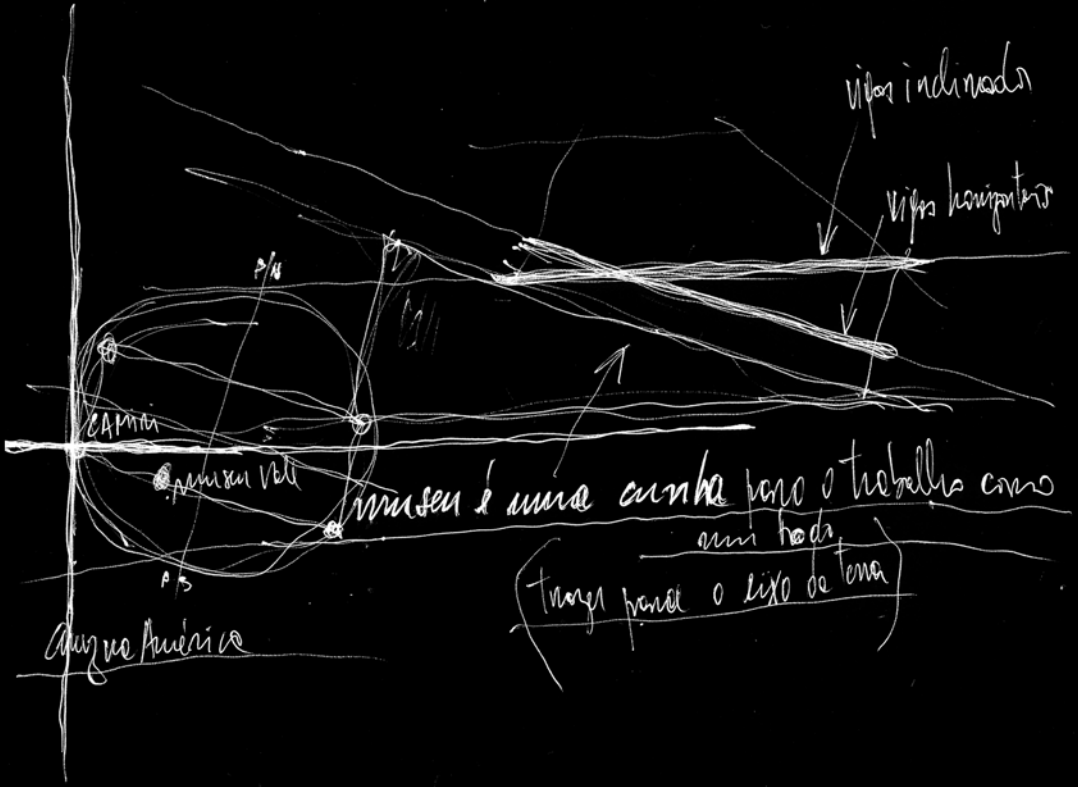 vigas inclinadas
vigas horizontais
CAMIRI
museu
museu é uma cunha para o trabalho como
um
(trazer para o eixo da terra)
cruz na América